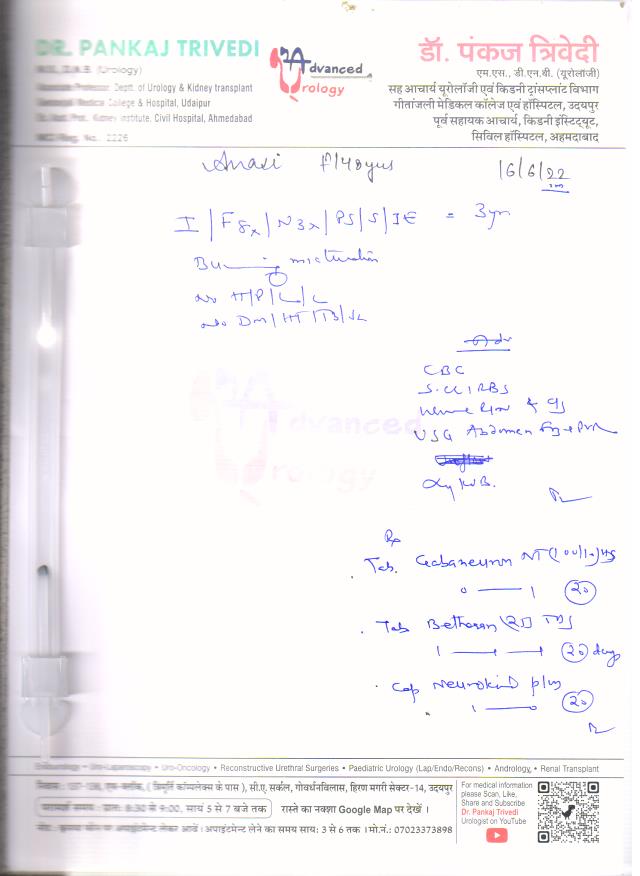 DR. PANKAJ TRIVEDI
(Urology)
Professor Deptt. of Urology & Kidney transplant
Medical College & Hospital, Udaipur
Kidney Institute, Civil Hospital, Ahmedabad
Reg. No. 2226
Advanced
Urology
डॉ. पंकज त्रिवेदी
एम.एस., डी.एन.बी. (यूरोलॉजी)
सह आचार्य यूरोलॉजी एवं किडनी ट्रांसप्लांट विभाग
गीतांजली मेडिकल कॉलेज एवं हॉस्पिटल, उदयपुर
पूर्व सहायक आचार्य, किडनी इंस्टिट्यूट,
सिविल हॉस्पिटल, अहमदाबाद
F/48yrs
16/6/22
I/F8x/N3x/PS/S/IE = 3yr
micturition
No H/P/L/L
No DM/HT/TB/
Adv
CBC
RBS
USG Abdomen
Advanced
Urology
Rx
Tab. Gabaneuron NT (100/10) HS
0 — 1 (20)
Tab Betheran (25) TDS
1 — — (20) days
Cap Neurokind plus
1 — 0 (20)
Uro-Laparoscopy • Uro-Oncology • Reconstructive Urethral Surgeries • Paediatric Urology (Lap/Endo/Recons) • Andrology, • Renal Transplant
(त्रिमूर्ति कॉम्पलेक्स के पास), सी.ए. सर्कल, गोवर्धनविलास, हिरण मगरी सेक्टर-14, उदयपुर
प्रातः 8:30 से 9:00, सायं 5 से 7 बजे तक रास्ते का नक्शा Google Map पर देखें।
अपॉइंटमेन्ट लेने का समय सायः 3 से 6 तक। मो.नं.: 07023373898
For medical information
please Scan, Like,
Share and Subscribe
Dr. Pankaj Trivedi
Urologist on YouTube